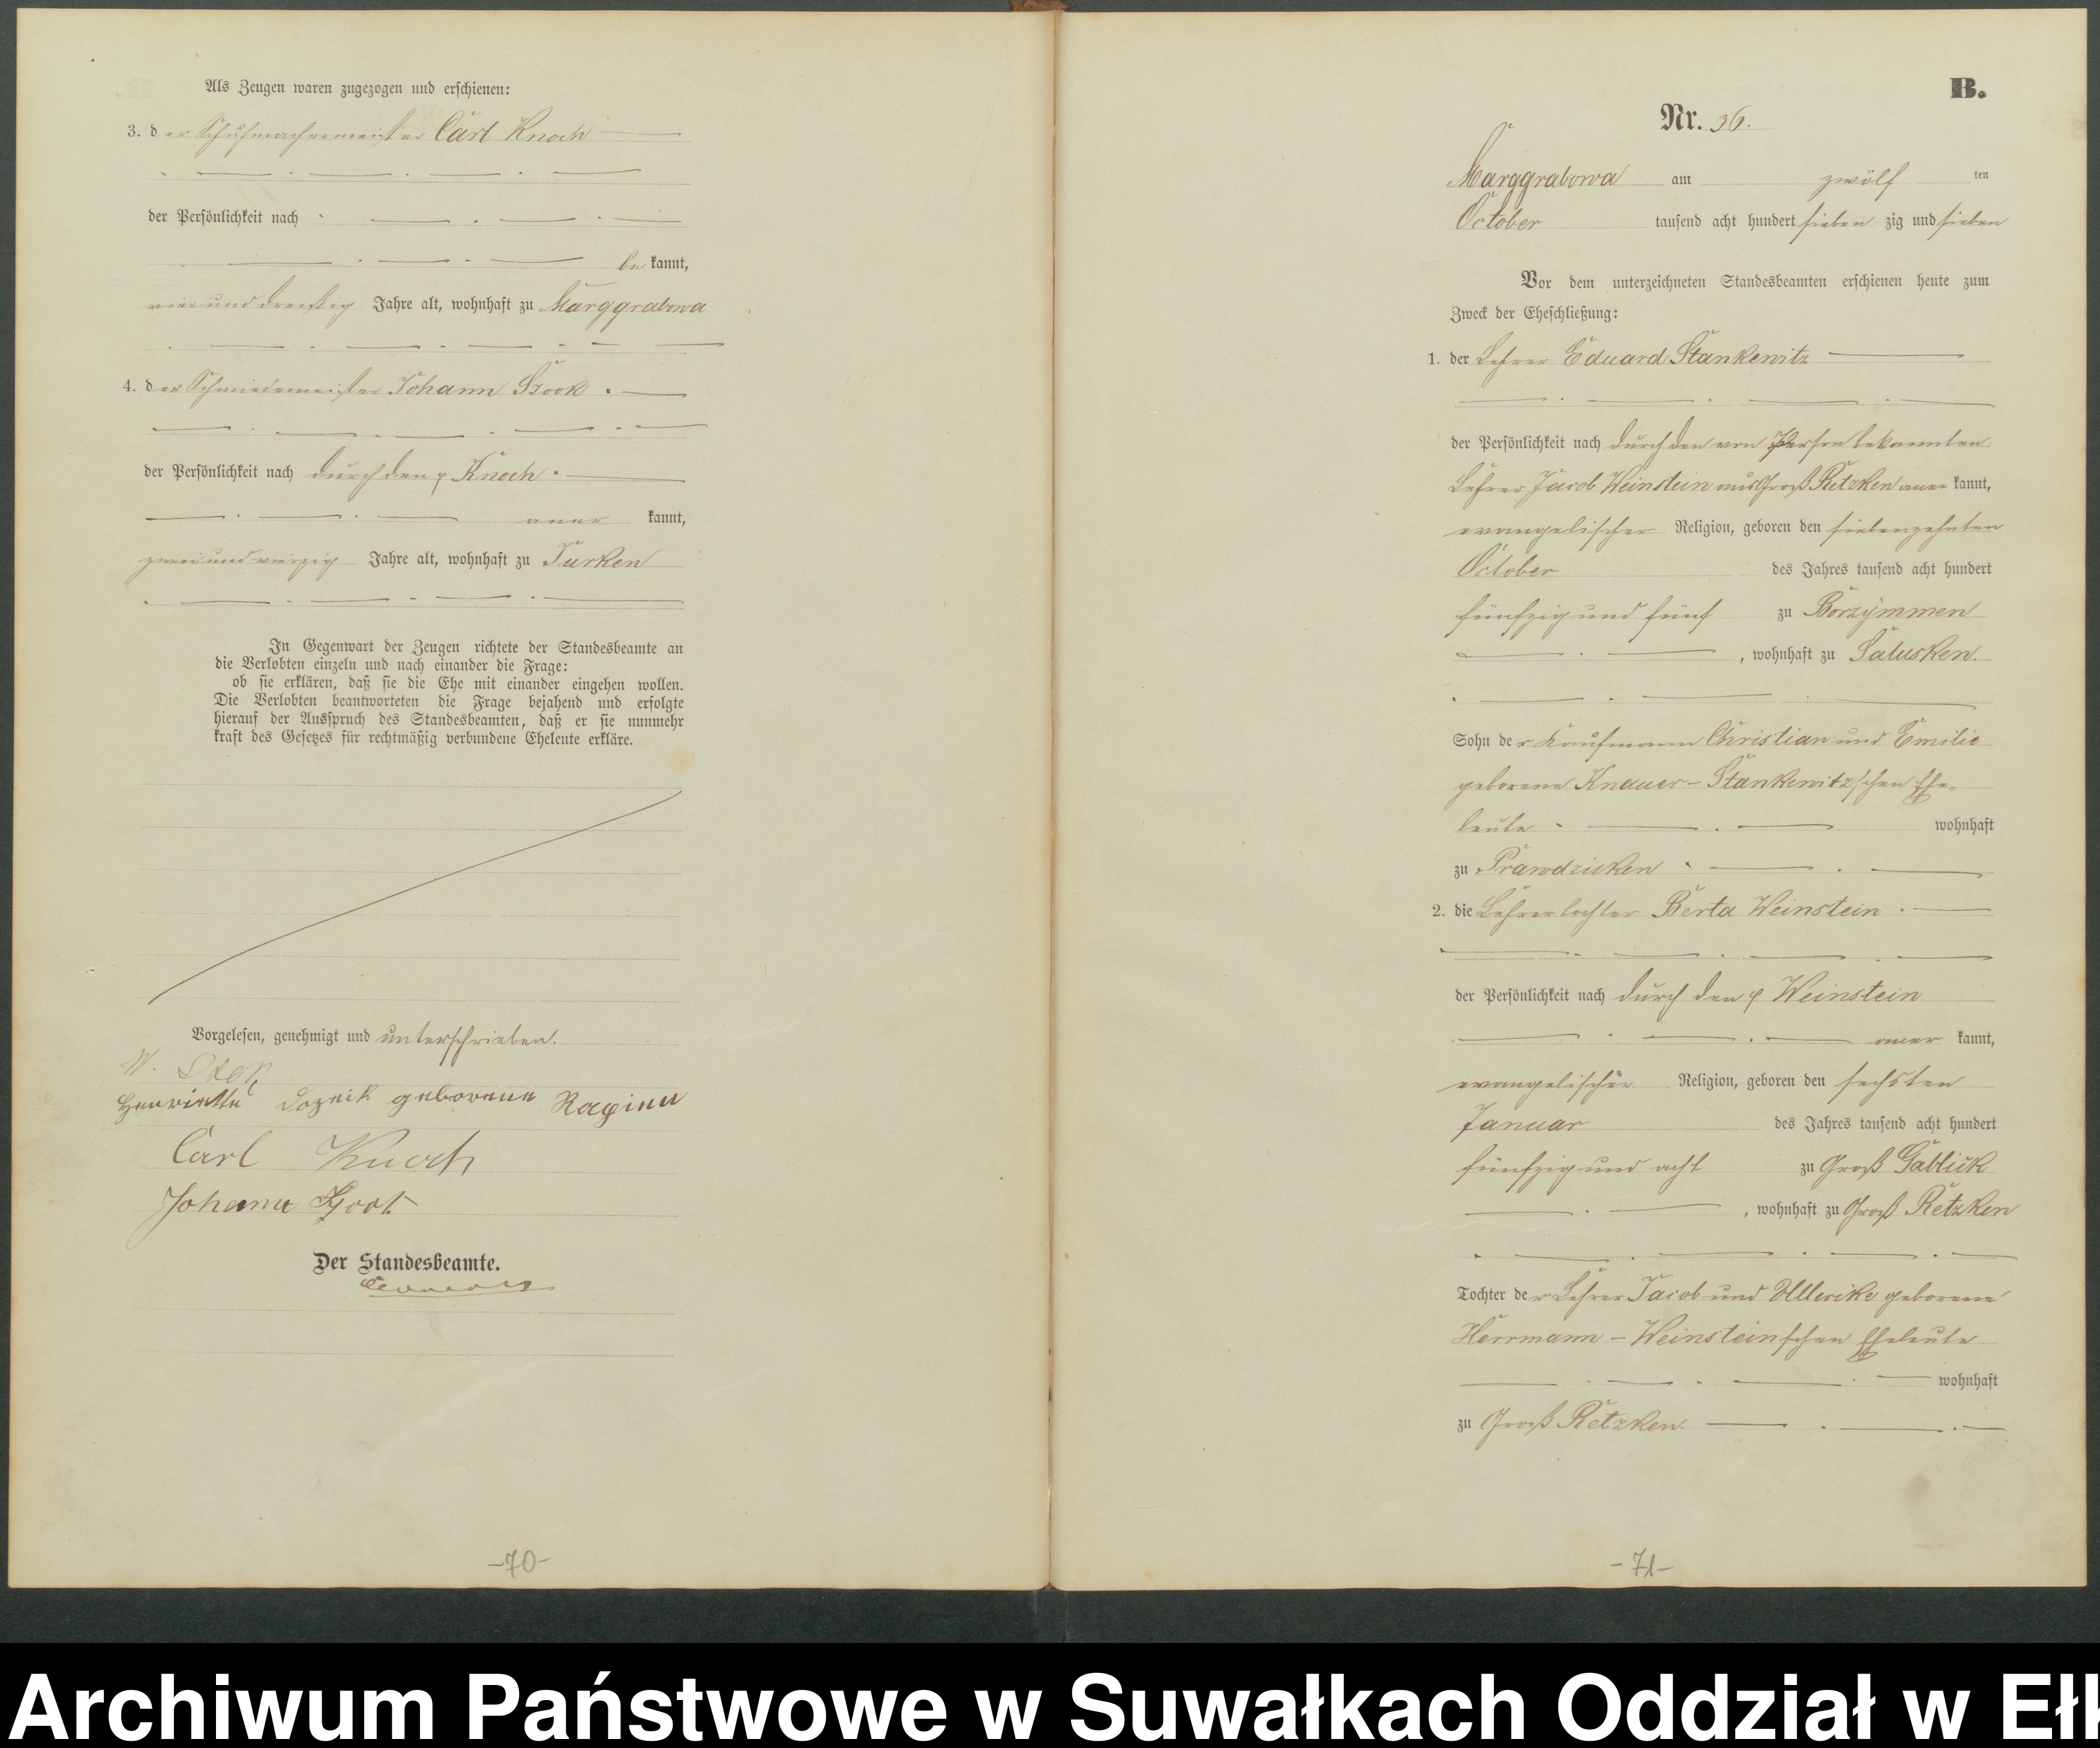 Als Zeugen waren zugezogen und erschienen:
3. der Schuhmachermeister Carl Knoch
der Persönlichkeit nach
bekannt,
vier und dreißig Jahre alt, wohnhaft zu Marggrabowa
4. der Schmiedemeister Johann
der Persönlichkeit nach durch den p Knoch
aner kannt,
zwei und vierzig Jahre alt, wohnhaft zu Jurken
In Gegenwart der Zeugen richtete der Standesbeamte an
die Verlobten einzeln und nach einander die Frage:
ob sie erklären, daß sie die Ehe mit einander eingehen wollen.
Die Verlobten beantworteten die Frage bejahend und erfolgte
hierauf der Ausspruch des Standesbeamten, daß er sie nunmehr
kraft des Gesetzes für rechtmäßig verbundene Eheleute erkläre.
Vorgelesen, genehmigt und unterschrieben.
Henriette geborene
Carl Knoch
Johann
Der Standesbeamte.
-70-
B.
Nr. 36.
Marggrabowa am zwölf ten
October tausend acht hundert sieben zig und sieben
Vor dem unterzeichneten Standesbeamten erschienen heute zum
Zweck der Eheschließung:
1. der Lehrer Eduard Stankewitz
der Persönlichkeit nach durch den von Person bekannten
Lehrer Jacob Weinstein aus Groß Retzken aner kannt,
evangelischer Religion, geboren den siebenzehnten
October des Jahres tausend acht hundert
fünfzig und fünf zu Borzymmen
, wohnhaft zu Salusken.
Sohn der Kaufmann Christian und Emilie
geborene Knauer- Stankewitz'schen Ehe-
leute wohnhaft
zu Prawdzisken
2. die Lehrertochter Berta Weinstein
der Persönlichkeit nach durch den p Weinstein
aner kannt,
evangelischer Religion, geboren den sechsten
Januar des Jahres tausend acht hundert
fünfzig und acht zu Groß Gablick
, wohnhaft zu Groß Retzken
Tochter der Lehrer Jacob und Ulerike geborene
Herrmann - Weinsteinschen Eheleute
wohnhaft
zu Groß Retzken.
-71-
Archiwum Państwowe w Suwałkach Oddział w Ełk